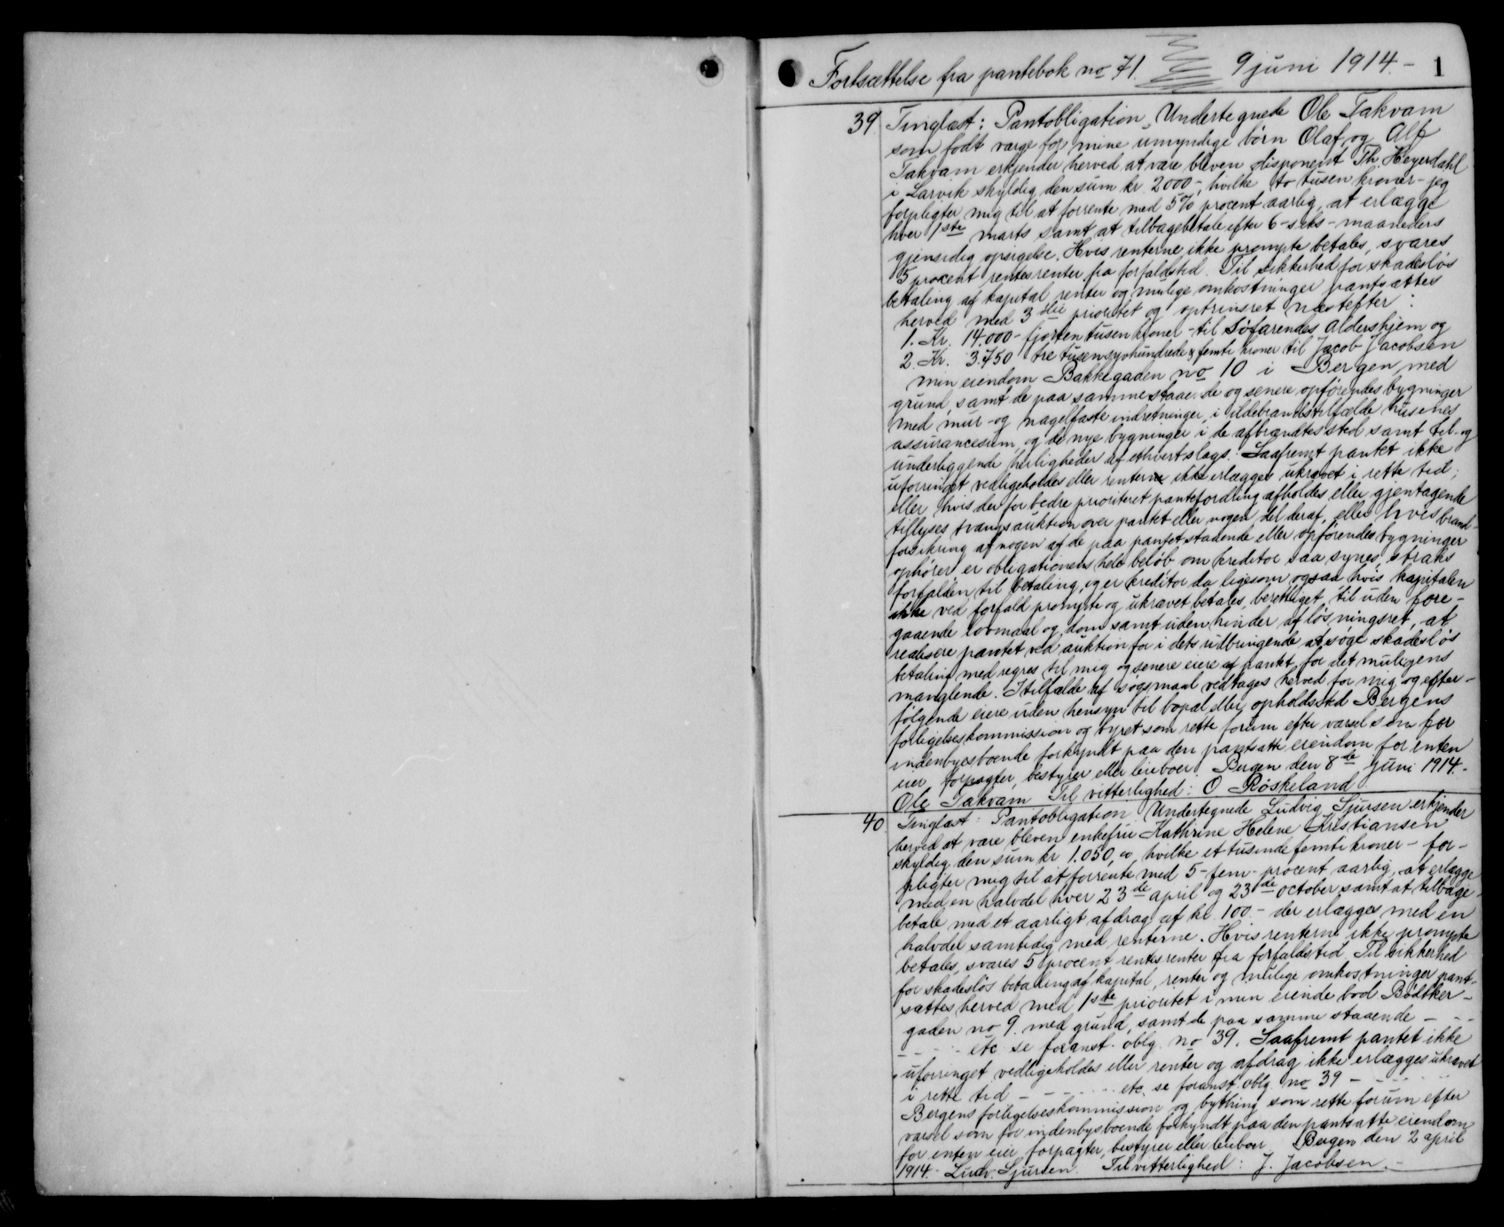 Fortsættelse fra pantebok no 71. 9 juni 1914. - 1
39 Tinglæst: Pantobligation. Undertegnede Ole Takvam
som født værge for mine umyndige børn Olaf og Alf
Takvam erkjender herved at være bleven disponent Th. Heyerdahl
i Larvik skyldig den sum kr 2000-, hvilke to tusen kroner - jeg
forpligter mig til at forrente med 5% procent aarlig, at erlægge
hver 1ste marts samt at tilbagebetale efter 6-seks-maaneders
gjensidig opsigelse. Hvis renterne ikke prompte betales, svares
5 procent rentesrenter fra forfaldstid. Til sikkerhed for skadesløs
betaling af kapital, renter og mulige omkostninger pantsættes
herved med 3die prioritet og optrinsret næstefter:
1. Kr. 14.000- fjorten tusen kroner - til Søfarendes Aldershjem og
2. Kr. 3.750 tre tusen syvhundrede & femti kroner til Jacob Jacobsen
min eiendom Bakkegaden no 10 i Bergen med
grund, samt de paa samme staaende og senere opførendes bygninger
med mur- og nagelfaste indretninger, i ildebrandstilfælde husenes
assurancesum, og de nye bygninger i de afbrændtes sted samt til- og
underliggende herligheder af ethvertslags. Saafremt pantet ikke
uforringet vedligeholdes eller renterne ikke erlægges ukrævet i rette tid;
eller hvis der for bedre prioriteret pantefordring afholdes eller gjentagende
tillyses tvangsauktion over pantet eller nogen del deraf, eller hvis brand-
forsikring af nogen af de paa pantet staaende eller opførendes bygninger
ophører er obligationens hele beløb om kreditor saa synes, straks
forfalden til betaling, og er kreditor da ligesom ogsaa hvis kapitalen
ikke ved forfald prompte og ukrævet betales, berettiget til uden fore-
gaaende lovmaal og dom samt uden hinder af løsningsret, at
realisere pantet ved auktion for i dets udbringende at søge skadesløs
betaling med regres til mig og senere eiere af pantet, for det muligens
manglende. I tilfælde af søgsmaal vedtages herved for mig og efter-
følgende eiere uden hensyn til bopæl eller opholdssted Bergens
forligelseskommission og byret som rette forum efter varsel som for
indenbyesboende forkyndt paa den pantsatte eiendom for enten
eier, forpagter, bestyrer eller leieboer. Bergen den 8de Juni 1914.
Ole Takvam Til vitterlighed: O Røskeland
40 Tinglæst Pantobligation. Undertegnede Ludvig Sjursen erkjender
herved at være bleven enkefru Kathrine Helene Kristiansen
skyldig den sum kr 1.050,00, hvilke et tusende femti kroner - for-
pligter mig til at forrente med 5-fem-procent aarlig, at erlægge
med en halvdel hver 23de april og 23de october samt at tilbage-
betale med et aarligt afdrag af kr. 100.- der erlægges med en
halvdel samtidig med renterne. Hvis renterne ikke prompte
betales, svares 5 procent rentesrenter fra forfaldstid. Til sikkerhed
for skadesløs betaling af kapital, renter og mulige omkostninger pant-
sættes herved med 1ste prioritet i min eiende bod Bødker-
gaden no 9. med grund, samt de paa samme staaende - - -
- - - - etc se foranst. oblg. no 39. Saafremt pantet ikke
uforringet vedligeholdes eller renter og afdrag ikke erlægges ukrævet
i rette tid - - - - - etc. se foranst. oblg. no 39 - - - - -
Bergens forligelseskommission og bything som rette forum efter
varsel som for indenbysboende forkyndt paa den pantsatte eiendom
for enten eier, forpagter, bestyrer eller leieboer. Bergen den 2 april
1914. Ludv. Sjursen. Til vitterlighed: J. Jacobsen. -